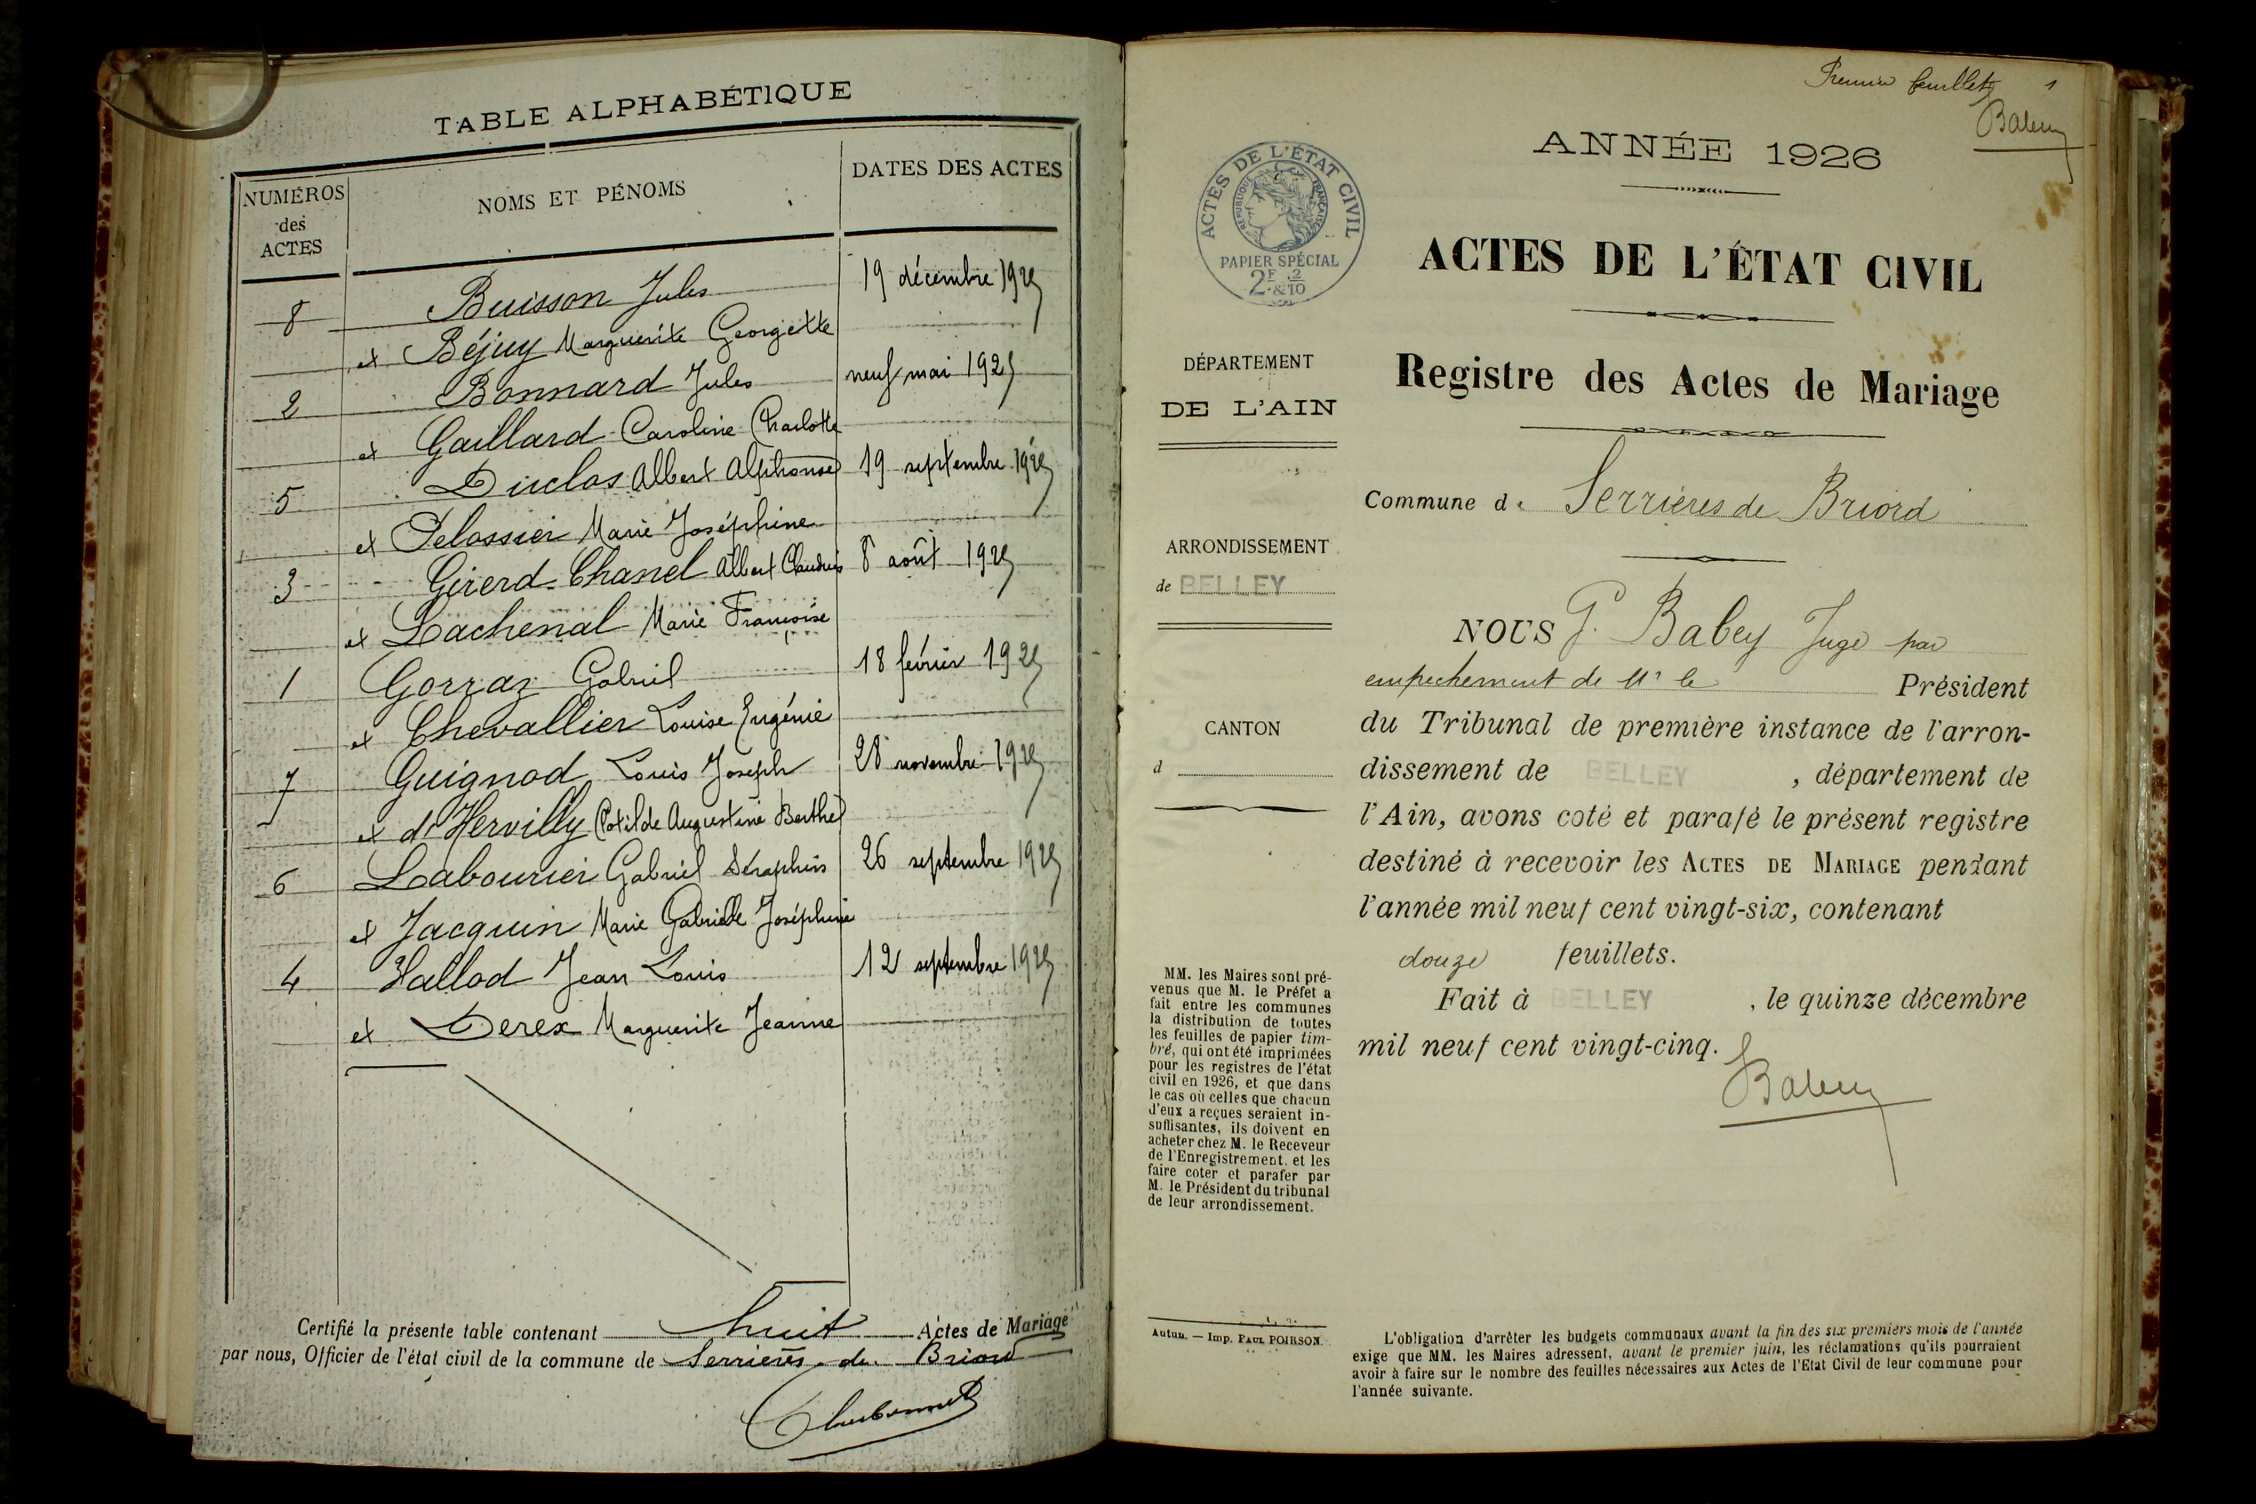 TABLE ALPHABÉTIQUE
NUMÉROS
des
ACTES
NOMS ET PÉNOMS
DATES DES ACTES
8 Buisson Jules 19 décembre 1925
et Béjuy Marguerite Georgette
2 Bonnard Jules neuf mai 1925
et Gaillard Caroline Charlotte
5 Duclos Albert Alphonse 19 septembre 1925
et Pelossier Marie Joséphine
3 Girerd-Chanel Albert Claudius 8 août 1925
et Lachenal Marie Françoise
1 Gorraz Gabriel 18 février 1925
et Chevallier Louise Eugénie
7 Guignod Louis Joseph 28 novembre 1925
et d'Hervilly Clotilde Augustine Berthe
6 Labourier Gabriel Séraphin 26 septembre 1925
et Jacquin Marie Gabrielle Joséphine
4 Vallod Jean Louis 12 septembre 1925
et Derex Marguerite Jeanne
Certifié la présente table contenant huit Actes de Mariage
par nous, Officier de l'état civil de la commune de Serrières de Briord
Premier feuillet 1
Babey
ANNÉE 1926
ACTES DE L'ÉTAT CIVIL
RÉPUBLIQUE FRANÇAISE
PAPIER SPÉCIAL
2F & 2/10
ACTES DE L'ÉTAT CIVIL
Registre des Actes de Mariage
DÉPARTEMENT
DE L'AIN
Commune de Serrières de Briord
ARRONDISSEMENT
de BELLEY
CANTON
d
NOUS G. Babey Juge par
empechement de Mr le Président
du Tribunal de première instance de l'arron-
dissement de BELLEY, département de
l'Ain, avons coté et parafé le présent registre
destiné à recevoir les ACTES DE MARIAGE pendant
l'année mil neuf cent vingt-six, contenant
douze feuillets.
Fait à BELLEY, le quinze décembre
mil neuf cent vingt-cinq.
Babey
MM. les Maires sont pré-
venus que M. le Préfet a
fait entre les communes
la distribution de toutes
les feuilles de papier tim-
bré, qui ont été imprimées
pour les registres de l'état
civil en 1926, et que dans
le cas où celles que chacun
d'eux a reçues seraient in-
suffisantes, ils doivent en
acheter chez M. le Receveur
de l'Enregistrement, et les
faire coter et parafer par
M. le Président du tribunal
de leur arrondissement.
Autun. — Imp. PAUL POIRSON.
L'obligation d'arrêter les budgets communaux avant la fin des six premiers mois de l'année
exige que MM. les Maires adressent, avant le premier juin, les réclamations qu'ils pourraient
avoir à faire sur le nombre des feuilles nécessaires aux Actes de l'Etat Civil de leur commune pour
l'année suivante.